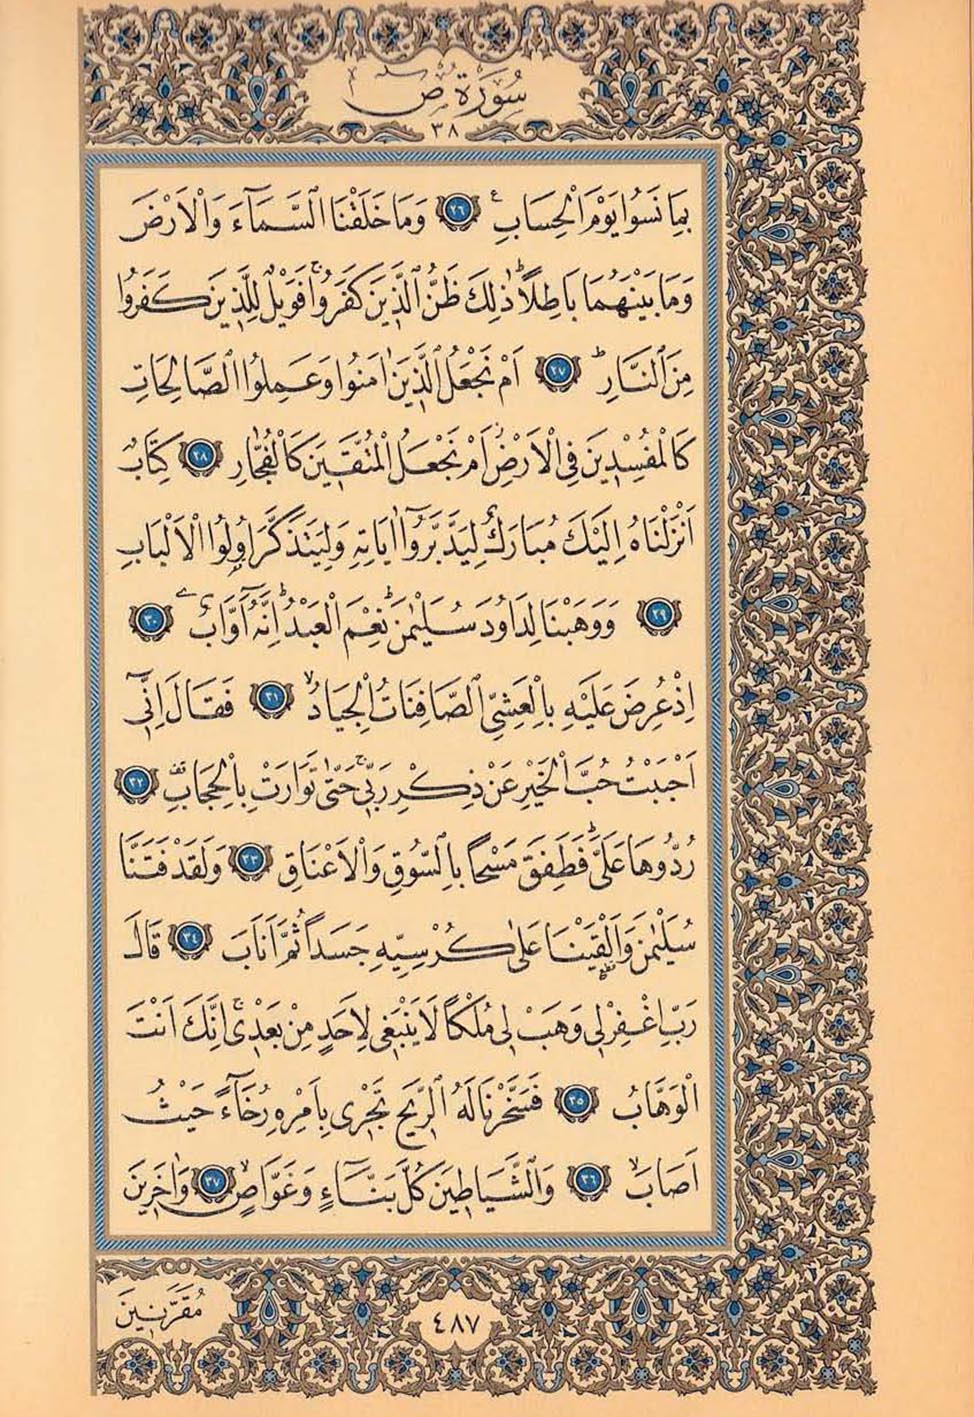 سُورَةُ صٓ
٣٨
بِمَا نَسُوا يَوْمَ الْحِسَابِ ﴿٢٦﴾ وَمَا خَلَقْنَا السَّمَٓاءَ وَالْاَرْضَ
وَمَا بَيْنَهُمَا بَاطِلاًۜ ذٰلِكَ ظَنُّ الَّذٖينَ كَفَرُواۚ فَوَيْلٌ لِلَّذٖينَ كَفَرُوا
مِنَ النَّارِۜ ﴿٢٧﴾ اَمْ نَجْعَلُ الَّذٖينَ اٰمَنُوا وَعَمِلُوا الصَّالِحَاتِ
كَالْمُفْسِدٖينَ فِي الْاَرْضِۘ اَمْ نَجْعَلُ الْمُتَّقٖينَ كَالْفُجَّارِ ﴿٢٨﴾ كِتَابٌ
اَنْزَلْنَاهُ اِلَيْكَ مُبَارَكٌ لِيَدَّبَّرُٓوا اٰيَاتِهٖ وَلِيَتَذَكَّرَ اُو۬لُوا الْاَلْبَابِ
﴿٢٩﴾ وَوَهَبْنَا لِدَاوُ۫دَ سُلَيْمٰنَۜ نِعْمَ الْعَبْدُۜ اِنَّهُٓ اَوَّابٌ ﴿٣٠﴾
اِذْ عُرِضَ عَلَيْهِ بِالْعَشِيِّ الصَّافِنَاتُ الْجِيَادُۙ ﴿٣١﴾ فَقَالَ اِنّٖٓي
اَحْبَبْتُ حُبَّ الْخَيْرِ عَنْ ذِكْرِ رَبّٖيۚ حَتّٰى تَوَارَتْ بِالْحِجَابِ ﴿٣٢﴾
رُدُّوهَا عَلَيَّۜ فَطَفِقَ مَسْحًا بِالسُّوقِ وَالْاَعْنَاقِ ﴿٣٣﴾ وَلَقَدْ فَتَنَّا
سُلَيْمٰنَ وَاَلْقَيْنَا عَلٰى كُرْسِيِّهٖ جَسَدًا ثُمَّ اَنَابَ ﴿٣٤﴾ قَالَ
رَبِّ اغْفِرْ لٖي وَهَبْ لٖي مُلْكًا لَا يَنْبَغٖي لِاَحَدٍ مِنْ بَعْدٖيۚ اِنَّكَ اَنْتَ
الْوَهَّابُ ﴿٣٥﴾ فَسَخَّرْنَا لَهُ الرّٖيحَ تَجْرٖي بِاَمْرِهٖ رُخَٓاءً حَيْثُ
اَصَابَۙ ﴿٣٦﴾ وَالشَّيَاطٖينَ كُلَّ بَنَّٓاءٍ وَغَوَّاصٍۙ ﴿٣٧﴾ وَاٰخَرٖينَ
مُقَرَّنٖينَ
٤٨٧